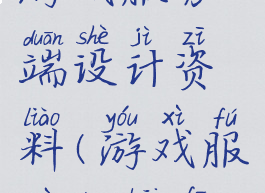 duān shè jì zī
端设计资
liào yóu xì fú
料(游戏服